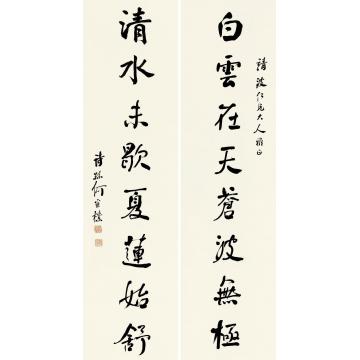 靖波仁兄大人雅正
白雲在天蒼波無極
清水未歇夏蓮始舒
何維樸